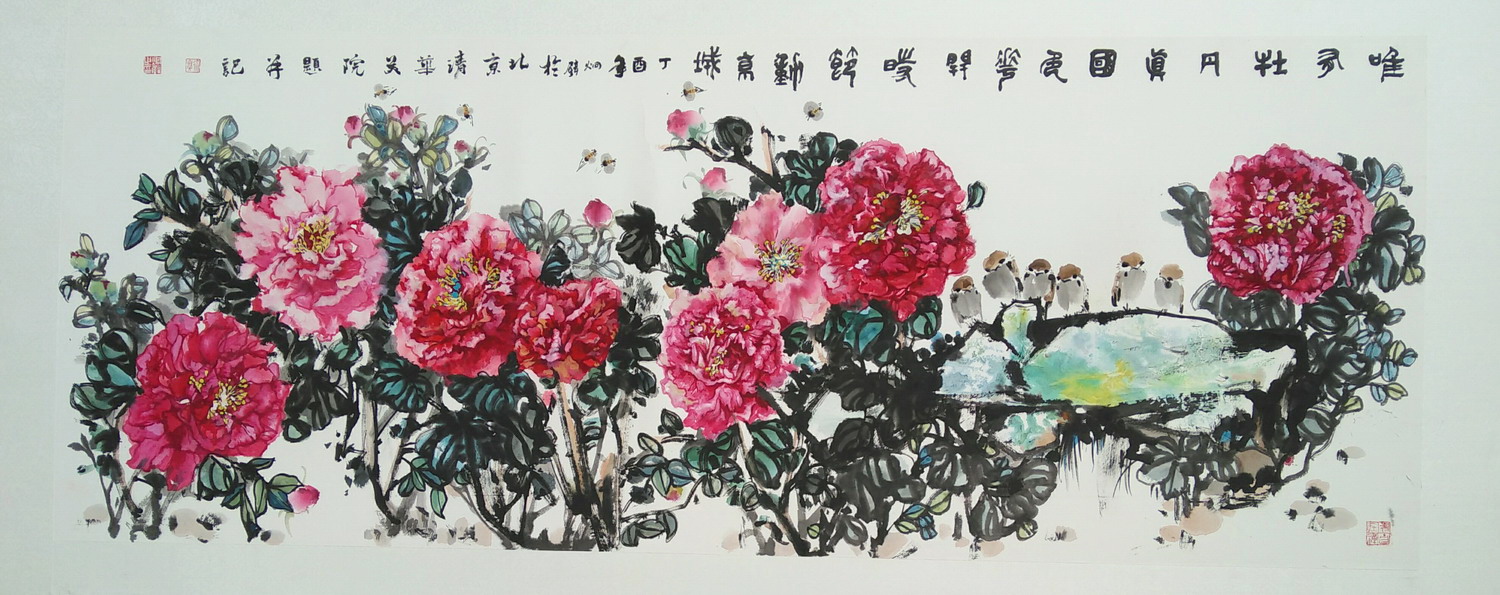 唯有牡丹真國色花開時節動京城丁酉年於北京清華美院題并記